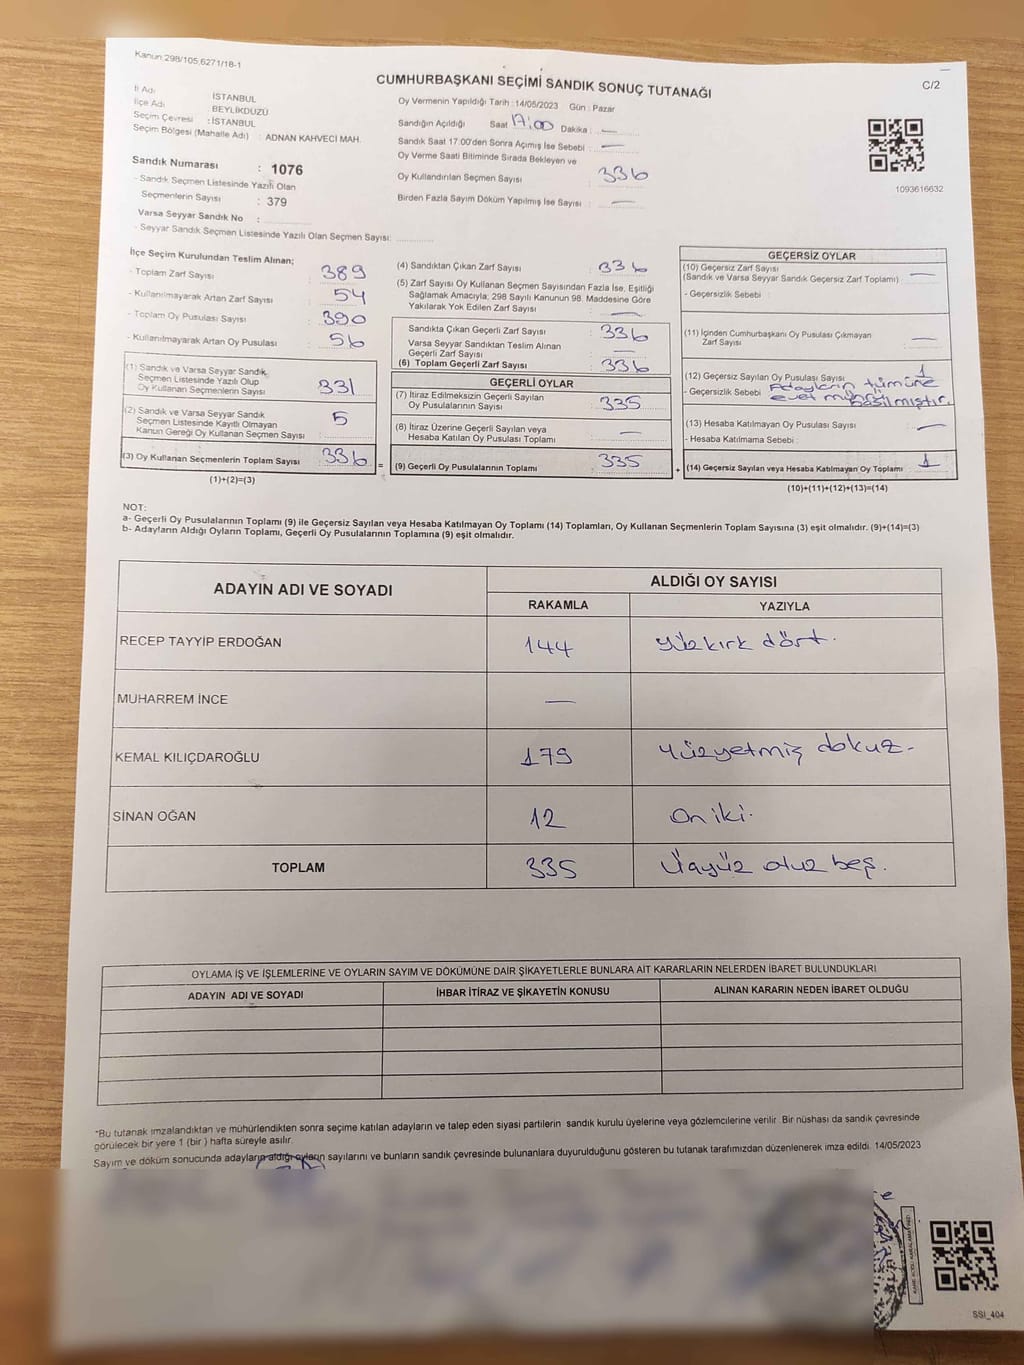 Kanun:298/105,6271/18-1
CUMHURBAŞKANI SEÇİMİ SANDIK SONUÇ TUTANAĞI
C/2
İl Adı : İSTANBUL
İlçe Adı : BEYLİKDÜZÜ
Seçim Çevresi : İSTANBUL
Seçim Bölgesi (Mahalle Adı) : ADNAN KAHVECİ MAH.
Sandık Numarası : 1076
- Sandık Seçmen Listesinde Yazılı Olan
Seçmenlerin Sayısı : 379
Varsa Seyyar Sandık No :
- Seyyar Sandık Seçmen Listesinde Yazılı Olan Seçmen Sayısı:
Oy Vermenin Yapıldığı Tarih : 14/05/2023 Gün : Pazar
Sandığın Açıldığı Saat 17:00 Dakika : —
Sandık Saat 17:00'den Sonra Açımış İse Sebebi : —
Oy Verme Saati Bitiminde Sırada Bekleyen ve
Oy Kullandırılan Seçmen Sayısı : 336
Birden Fazla Sayım Döküm Yapılmış İse Sayısı : —
1093616632
İlçe Seçim Kurulundan Teslim Alınan;
- Toplam Zarf Sayısı : 389
- Kullanılmayarak Artan Zarf Sayısı : 54
- Toplam Oy Pusulası Sayısı : 390
- Kullanılmayarak Artan Oy Pusulası : 56
(1) Sandık ve Varsa Seyyar Sandık
Seçmen Listesinde Yazılı Olup
Oy Kullanan Seçmenlerin Sayısı : 331
(2) Sandık ve Varsa Seyyar Sandık
Seçmen Listesinde Kayıtlı Olmayan
Kanun Gereği Oy Kullanan Seçmen Sayısı : 5
(3) Oy Kullanan Seçmenlerin Toplam Sayısı 336
(1)+(2)=(3)
=
(4) Sandıktan Çıkan Zarf Sayısı : 336
(5) Zarf Sayısı Oy Kullanan Seçmen Sayısından Fazla İse, Eşitliği
Sağlamak Amacıyla; 298 Sayılı Kanunun 98. Maddesine Göre
Yakılarak Yok Edilen Zarf Sayısı : —
Sandıkta Çıkan Geçerli Zarf Sayısı : 336
Varsa Seyyar Sandıktan Teslim Alınan
Geçerli Zarf Sayısı : —
(6) Toplam Geçerli Zarf Sayısı : 336
GEÇERLİ OYLAR
(7) İtiraz Edilmeksizin Geçerli Sayılan
Oy Pusulalarının Sayısı : 335
(8) İtiraz Üzerine Geçerli Sayılan veya
Hesaba Katılan Oy Pusulası Toplamı : —
(9) Geçerli Oy Pusulalarının Toplamı : 335
+
GEÇERSİZ OYLAR
(10) Geçersiz Zarf Sayısı
(Sandık ve Varsa Seyyar Sandık Geçersiz Zarf Toplamı) : —
- Geçersizlik Sebebi :
(11) İçinden Cumhurbaşkanı Oy Pusulası Çıkmayan
Zarf Sayısı : —
(12) Geçersiz Sayılan Oy Pusulası Sayısı : 1
- Geçersizlik Sebebi : Adayların tümüne
evet mührü basılmıştır.
(13) Hesaba Katılmayan Oy Pusulası Sayısı : —
- Hesaba Katılmama Sebebi :
(14) Geçersiz Sayılan veya Hesaba Katılmayan Oy Toplamı : 1
(10)+(11)+(12)+(13)=(14)
NOT:
a- Geçerli Oy Pusulalarının Toplamı (9) ile Geçersiz Sayılan veya Hesaba Katılmayan Oy Toplamı (14) Toplamları, Oy Kullanan Seçmenlerin Toplam Sayısına (3) eşit olmalıdır. (9)+(14)=(3)
b- Adayların Aldığı Oyların Toplamı, Geçerli Oy Pusulalarının Toplamına (9) eşit olmalıdır.
ADAYIN ADI VE SOYADI ALDIĞI OY SAYISI
RAKAMLA YAZIYLA
RECEP TAYYİP ERDOĞAN 144 yüzkırk dört.
MUHARREM İNCE —
KEMAL KILIÇDAROĞLU 179 yüzyetmiş dokuz-
SİNAN OĞAN 12 on iki.
TOPLAM 335 Üçyüz otuz beş.
OYLAMA İŞ VE İŞLEMLERİNE VE OYLARIN SAYIM VE DÖKÜMÜNE DAİR ŞİKAYETLERLE BUNLARA AİT KARARLARIN NELERDEN İBARET BULUNDUKLARI
ADAYIN ADI VE SOYADI İHBAR İTİRAZ VE ŞİKAYETİN KONUSU ALINAN KARARIN NEDEN İBARET OLDUĞU
*Bu tutanak imzalandıktan ve mühürlendikten sonra seçime katılan adayların ve talep eden siyasi partilerin sandık kurulu üyelerine veya gözlemcilerine verilir. Bir nüshası da sandık çevresinde
görülecek bir yere 1 (bir ) hafta süreyle asılır.
Sayım ve döküm sonucunda adayların aldığı oyların sayılarını ve bunların sandık çevresinde bulunanlara duyurulduğunu gösteren bu tutanak tarafımızdan düzenlenerek imza edildi. 14/05/2023
SSİ_404